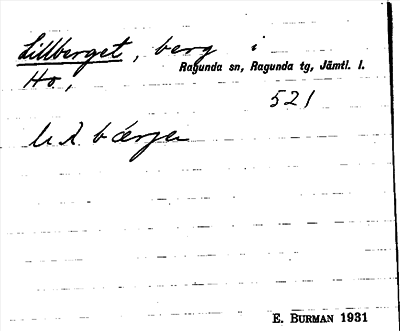 Lillberget, berg i
Ragunda sn, Ragunda tg, Jämtl. l.
Ho,
521
bærjen
E. BURMAN 1931